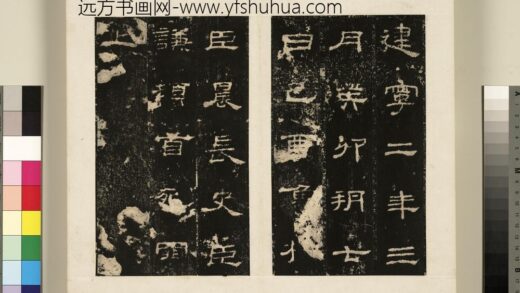 远方书画网-www.yfshuhua.com
建寧二年三
月癸卯朔七
日己酉
臣晨長史臣
謙頓首死罪